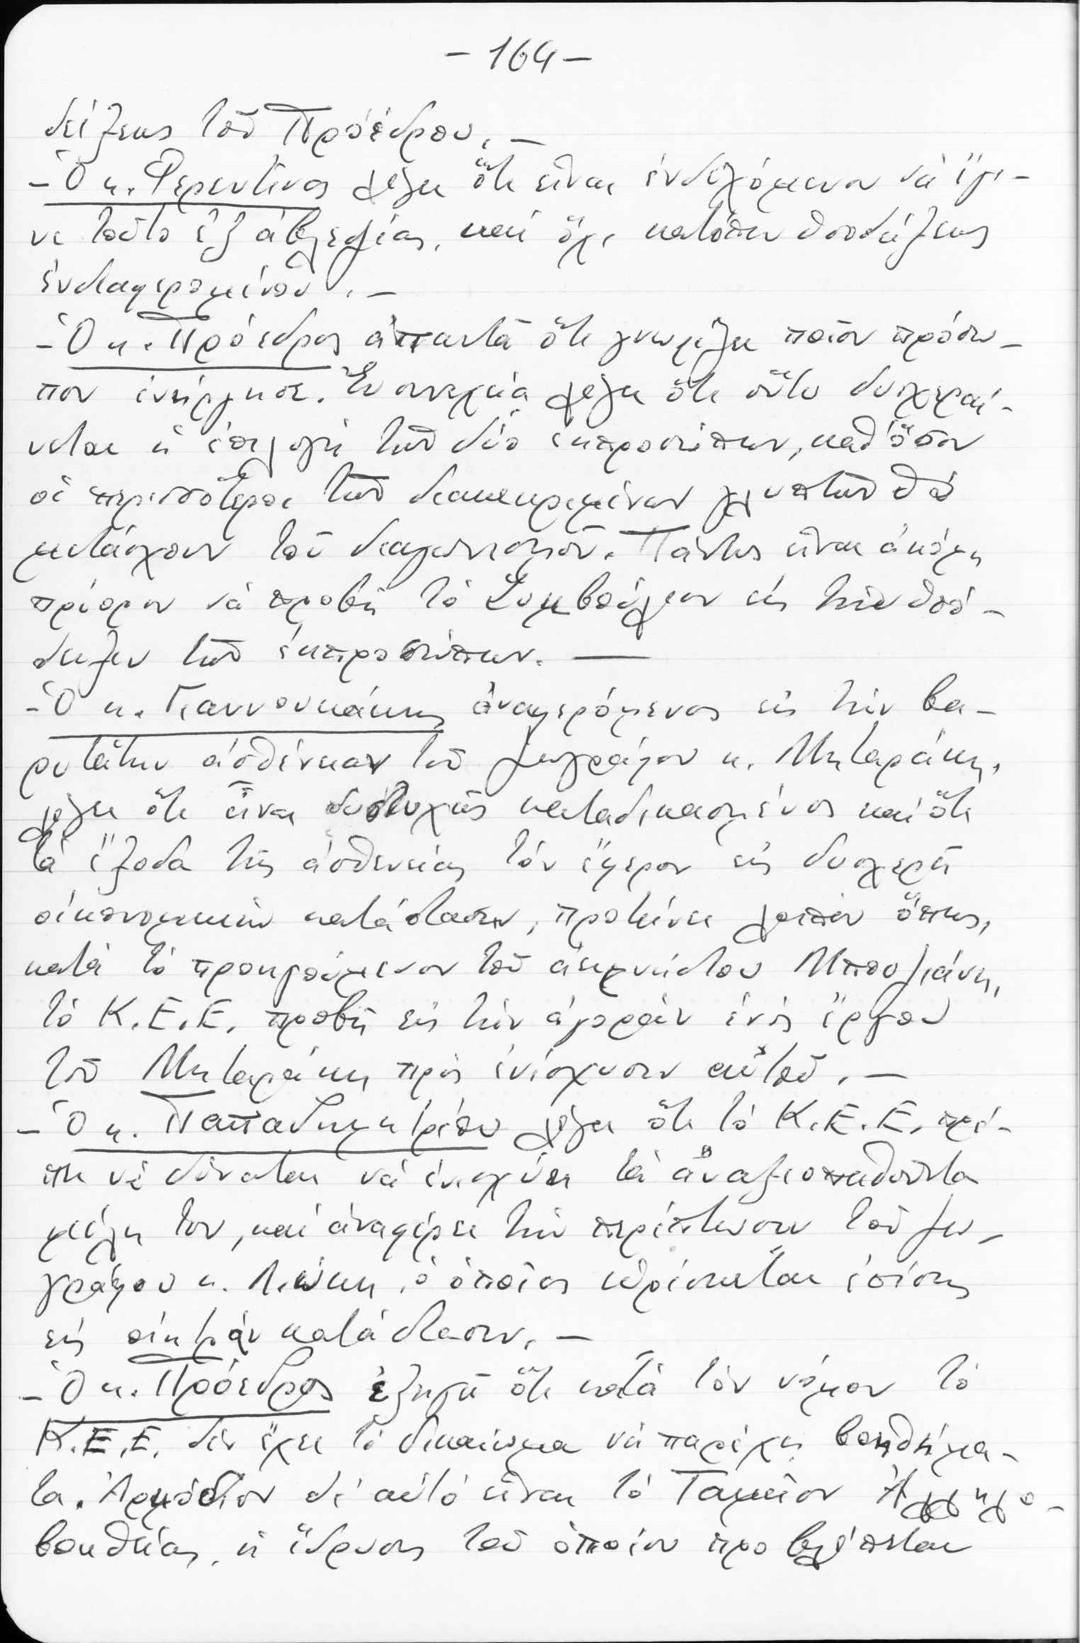 - 164 -
δείξεως τοῦ Προέδρου. -
- Ὁ κ. Φερεντῖνος λέγει ὅτι εἶναι ἐνδεχόμενον νὰ ἔγι-
νε τοῦτο ἐξ ἀβλεψίας, καὶ ὄχι κατόπιν ὑποδείξεως
ἐνδιαφερομένου. -
- Ὁ κ. Πρόεδρος ἀπαντᾶ ὅτι γνωρίζει ποῖον πρόσω-
πον ἐνήργησε. Ἐν συνεχείᾳ λέγει ὅτι οὕτω δυσχεραί-
νεται ἡ ἐπιλογὴ τῶν δύο ἐκπροσώπων, καθ' ὅσον
οἱ περισσότεροι τῶν διακεκριμένων γλυπτῶν θὰ
μετάσχουν τοῦ διαγωνισμοῦ. Πάντως εἶναι ἀκόμη
πρόωρον νὰ προβῇ τὸ Συμβούλιον εἰς τὴν ὑπό-
δειξιν τῶν ἐκπροσώπων. -
- Ὁ κ. Γιαννουκάκης ἀναφερόμενος εἰς τὴν βα-
ρυτάτην ἀσθένειαν τοῦ ζωγράφου κ. Μηταράκη,
λέγει ὅτι εἶναι δυστυχῶς καταδικασμένος καὶ ὅτι
τὰ ἔξοδα τῆς ἀσθενείας τὸν ἔφερον εἰς δυσχερῆ
οἰκονομικὴν κατάστασιν, προτείνει λοιπὸν ὅπως,
κατὰ τὸ προηγούμενον τοῦ ἀειμνήστου Μπουλιάνη,
τὸ Κ.Ε.Ε. προβῇ εἰς τὴν ἀγορὰν ἑνὸς ἔργου
τοῦ Μηταράκη πρὸς ἐνίσχυσιν αὐτοῦ. -
- Ὁ κ. Παπαδημητρίου λέγει ὅτι τὸ Κ.Ε.Ε. πρέ-
πει νὰ δύναται νὰ ἐνισχύει τὰ ἀναξιοπαθοῦντα
μέλη του, καὶ ἀναφέρει τὴν περίπτωσιν τοῦ ζω-
γράφου κ. Λιώκη, ὁ ὁποῖος εὑρίσκεται ἐπίσης
εἰς οἰκτρὰν κατάστασιν. -
- Ὁ κ. Πρόεδρος ἐξηγεῖ ὅτι κατὰ τὸν νόμον τὸ
Κ.Ε.Ε. δὲν ἔχει τὸ δικαίωμα νὰ παρέχῃ βοηθήμα-
τα. Ἁρμόδιον δι' αὐτὸ εἶναι τὸ Ταμεῖον Ἀλληλο-
βοηθείας, ἡ ἵδρυσις τοῦ ὁποίου προβλέπεται